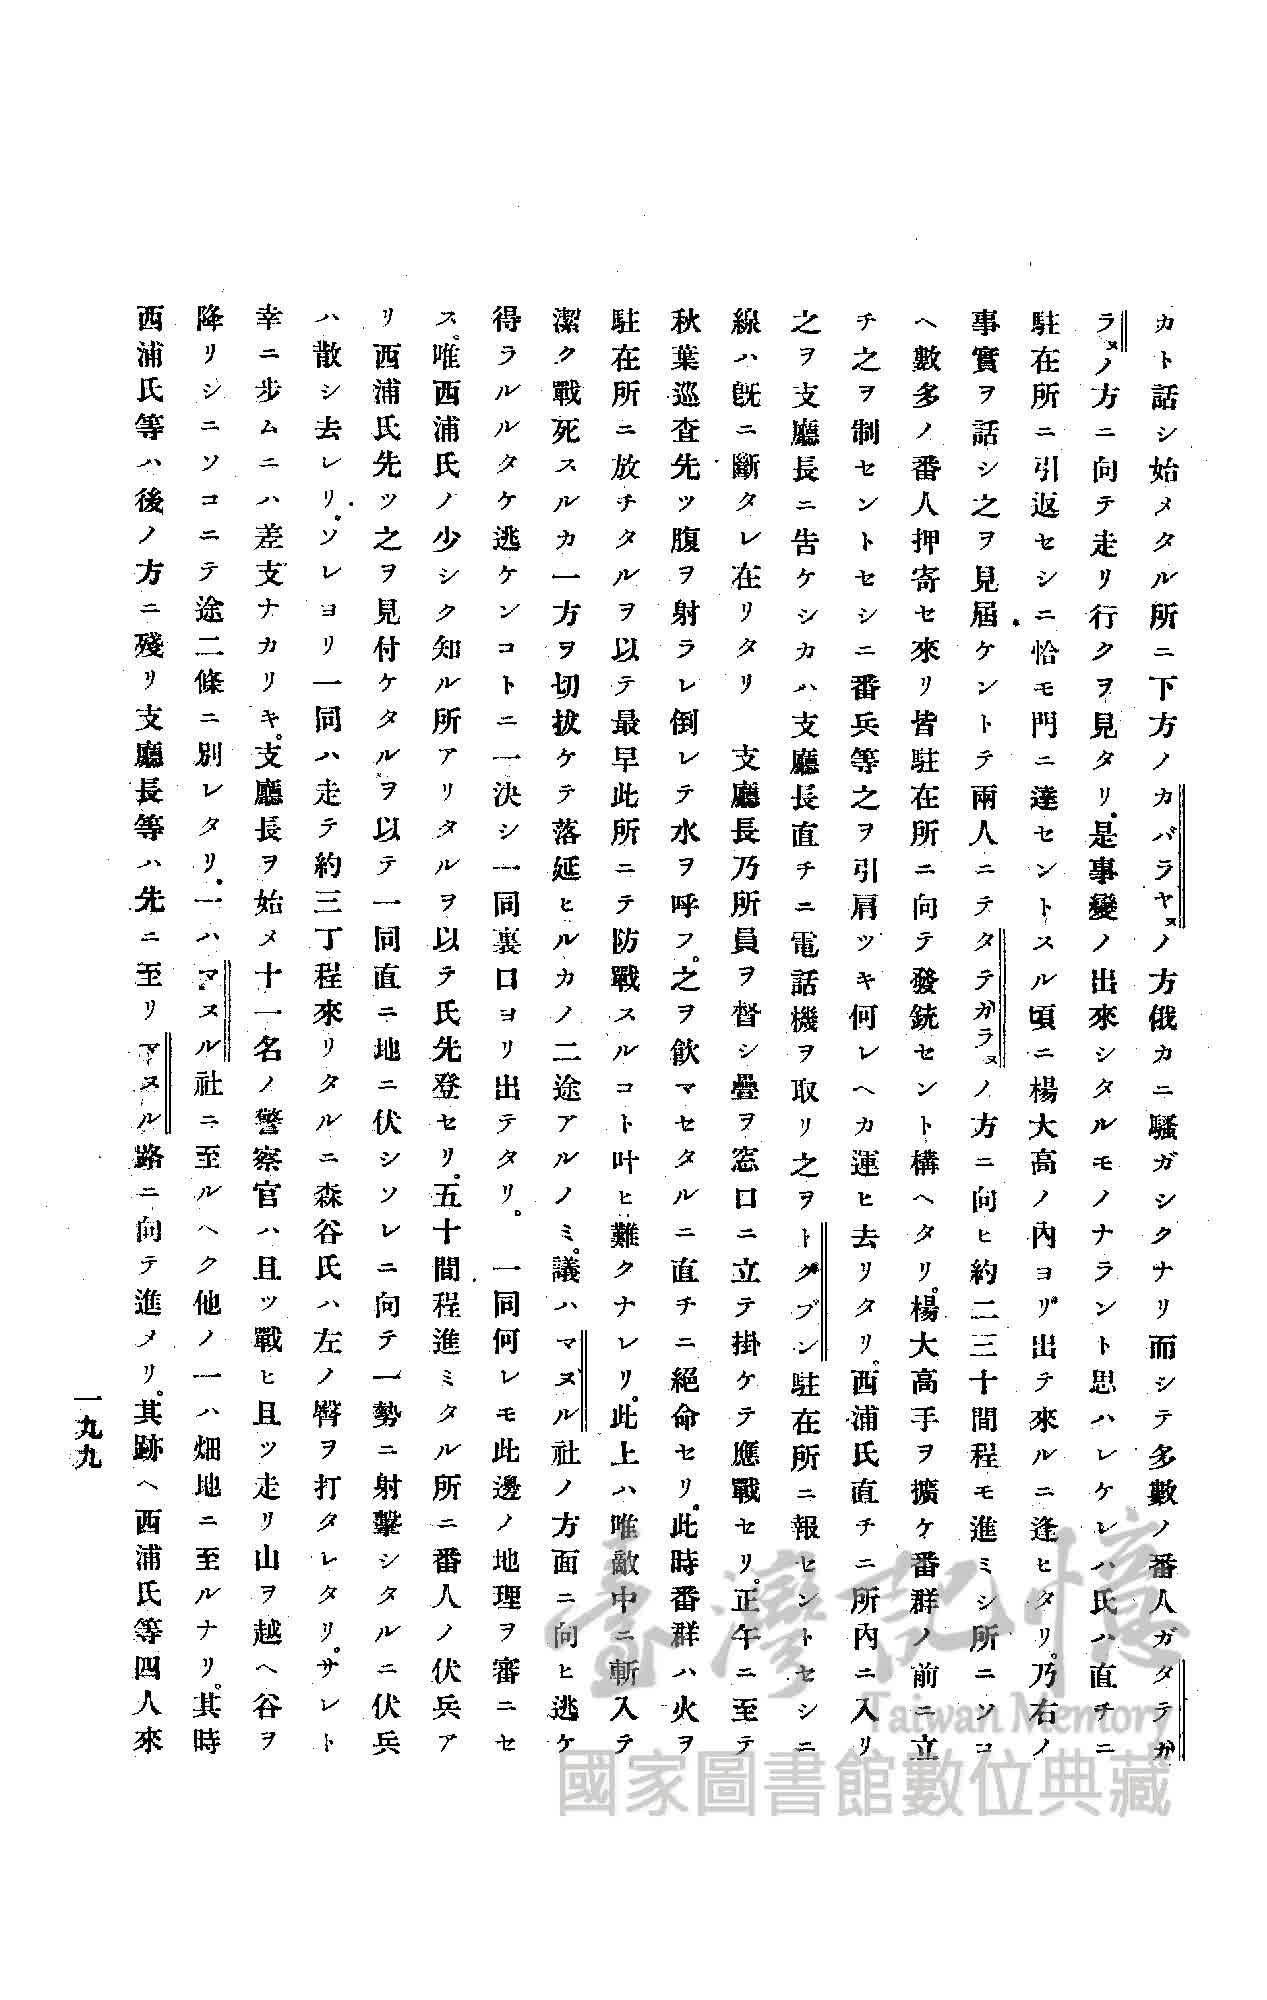 カト話シ始メタル所ニ下方ノカバラヤヌノ方俄カニ騷ガシクナリ而シテ多數ノ番人ガタテガ
ラヌノ方ニ向テ走リ行クヲ見タリ。是事變ノ出來シタルモノナラント思ハレケレハ氏ハ直チニ
駐在所ニ引返セシニ恰モ門ニ達セントスル頃ニ楊大高ノ內ヨリ出テ來ルニ逢ヒタリ。乃右ノ
事實ヲ話シ之ヲ見屆ケントテ兩人ニテタテガラヌノ方ニ向ヒ約二三十間程モ進ミシ所ニソコ
ヘ數多ノ番人押寄セ來リ皆駐在所ニ向テ發銃セント構ヘタリ。楊大高手ヲ擴ケ番群ノ前ニ立
チ之ヲ制セントセシニ番兵等之ヲ引肩ツキ何レヘカ運ヒ去リタリ。西浦氏直チニ所內ニ入リ
之ヲ支廳長ニ告ケシカハ支廳長直チニ電話機ヲ取リ之ヲトクブン駐在所ニ報セントセシニ
線ハ旣ニ斷タレ在リタリ 支廳長乃所員ヲ督シ疊ヲ窓口ニ立テ掛ケテ應戰セリ。正午ニ至テ
秋葉巡査先ツ腹ヲ射ラレ倒レテ水ヲ呼フ。之ヲ飮マセタルニ直チニ絕命セリ。此時番群ハ火ヲ
駐在所ニ放チタルヲ以テ最早此所ニテ防戰スルコト叶ヒ難クナレリ。此上ハ唯敵中ニ斬入テ
潔ク戰死スルカ一方ヲ切拔ケテ落延ヒルカノ二途アルノミ。議ハマヌル社ノ方面ニ向ヒ逃ケ
得ラルルタケ逃ケンコトニ一決シ一同裏口ヨリ出テタリ。 一同何レモ此邊ノ地理ヲ審ニセ
ス。唯西浦氏ノ少シク知ル所アリタルヲ以テ氏先登セリ。五十間程進ミタル所ニ番人ノ伏兵ア
リ西浦氏先ツ之ヲ見付ケタルヲ以テ一同直ニ地ニ伏シソレニ向テ一勢ニ射擊シタルニ伏兵
ハ散シ去レリ。ソレヨリ一同ハ走テ約三丁程來リタルニ森谷氏ハ左ノ臀ヲ打タレタリ。サレト
幸ニ步ムニハ差支ナカリキ。支廳長ヲ始メ十一名ノ警察官ハ且ツ戰ヒ且ツ走リ山ヲ越ヘ谷ヲ
降リシニソコニテ途二條ニ別レタリ。一ハマヌル社ニ至ルヘク他ノ一ハ畑地ニ至ルナリ。其時
西浦氏等ハ後ノ方ニ殘リ支廳長等ハ先ニ至リマヌル路ニ向テ進メリ。其跡ヘ西浦氏等四人來
一九九
臺灣記憶
Taiwan Memory
國家圖書館數位典藏